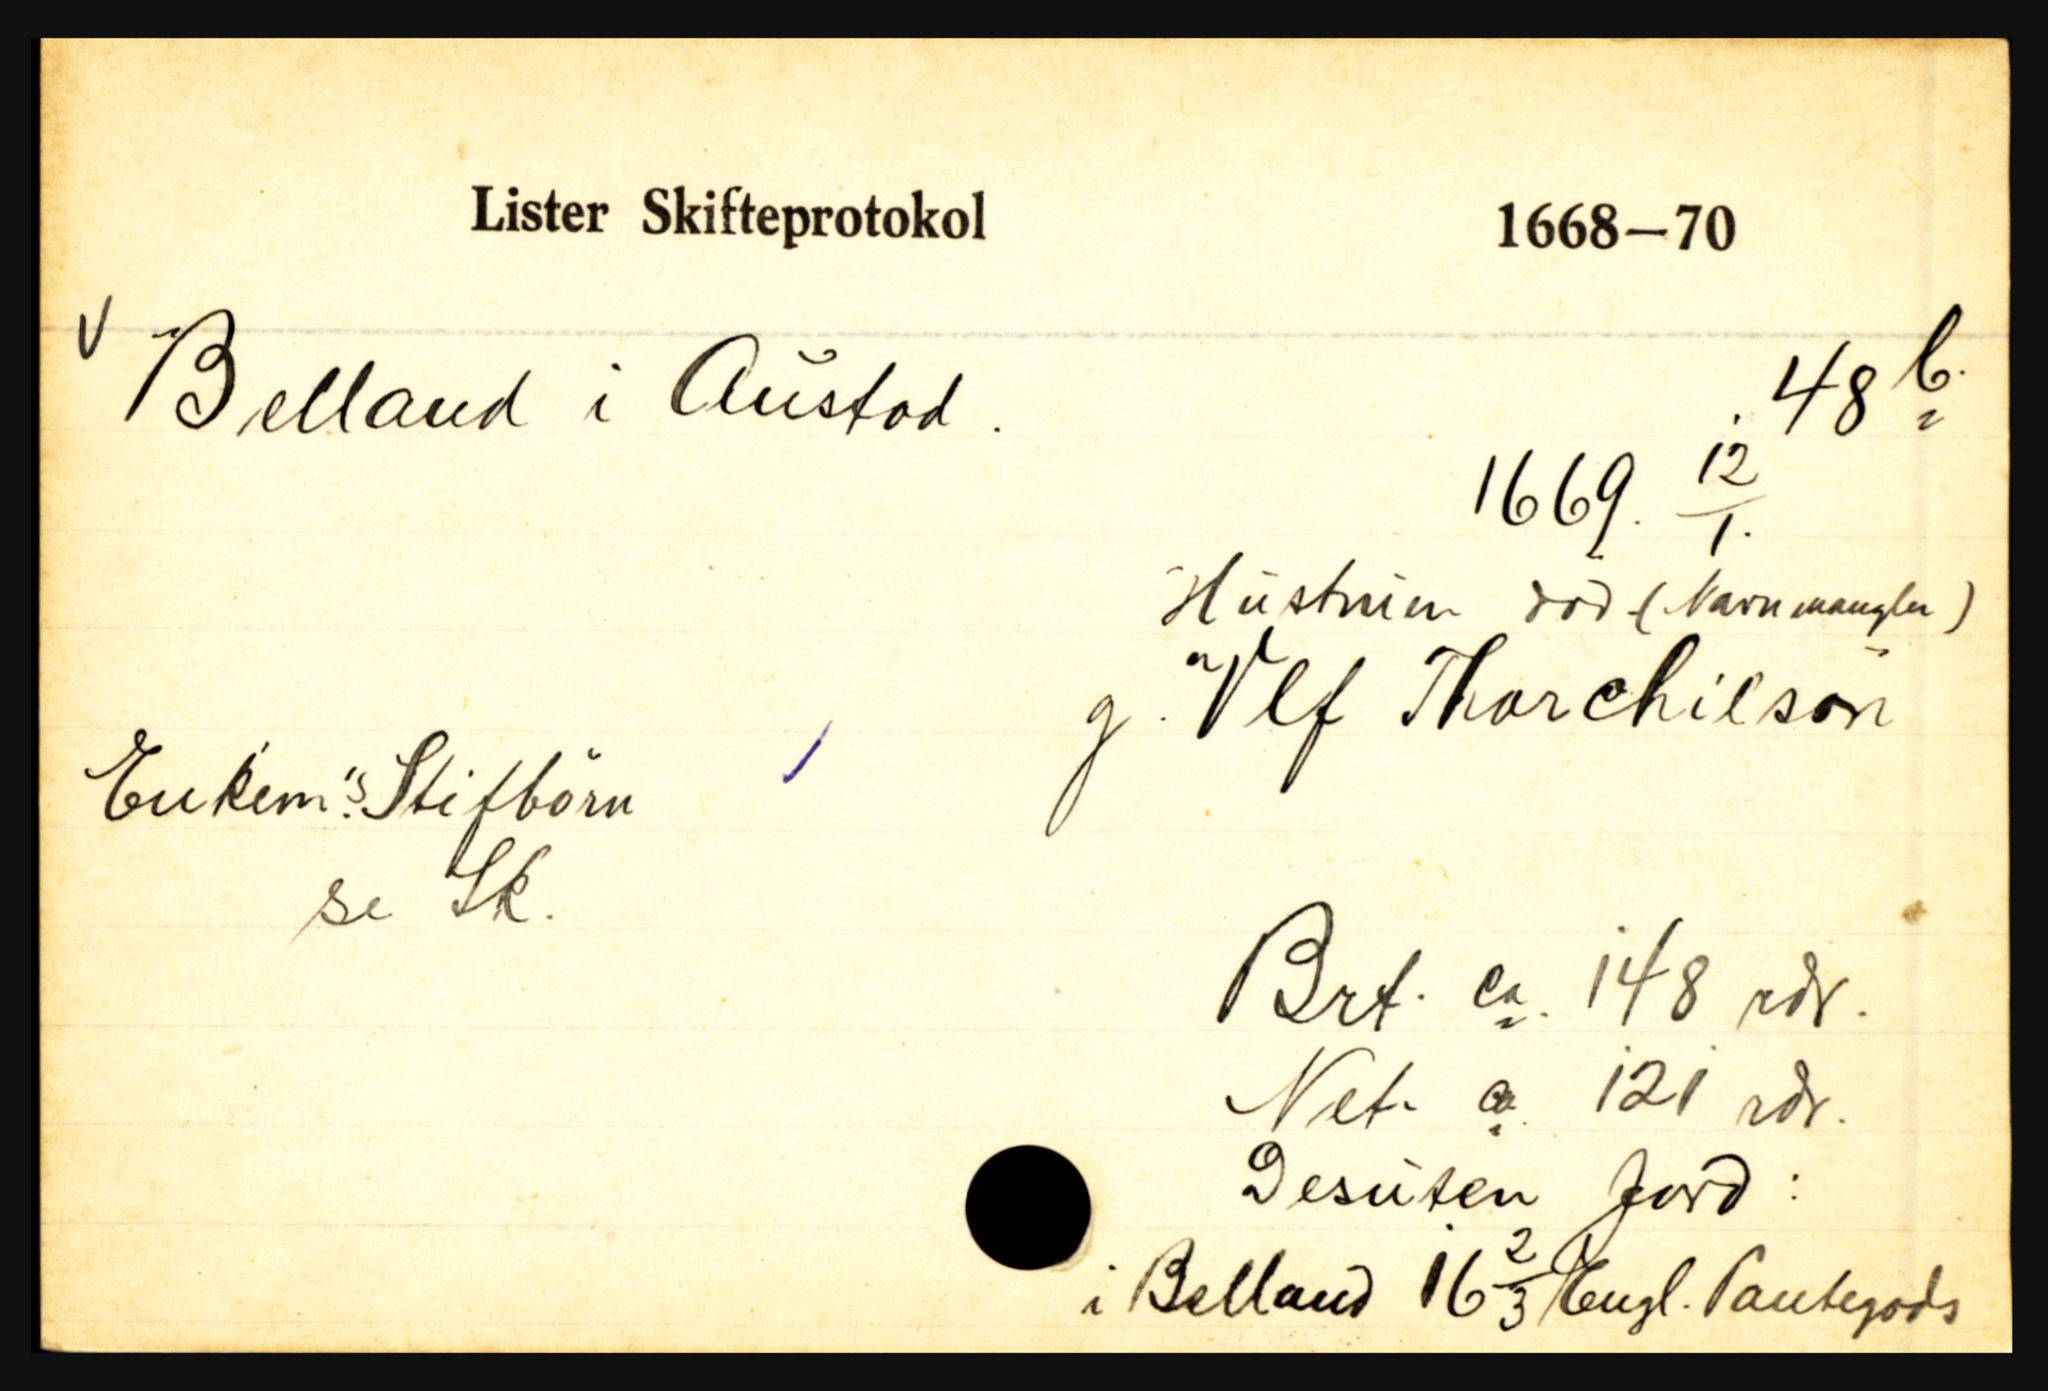 Lister Skifteprotokol 1668—70
V Belland i Austod. 48 b.
1669. 12/1.
Hustruen död (Navn mangler)
g. Vlf Thorchilsön
Enkem's Stifbörn
se Sk.
Brt. ca. 148 rdr.
Net. ca. 121 rdr.
Desuten Jord:
i Belland 16 2/3 Engl. Pantegods